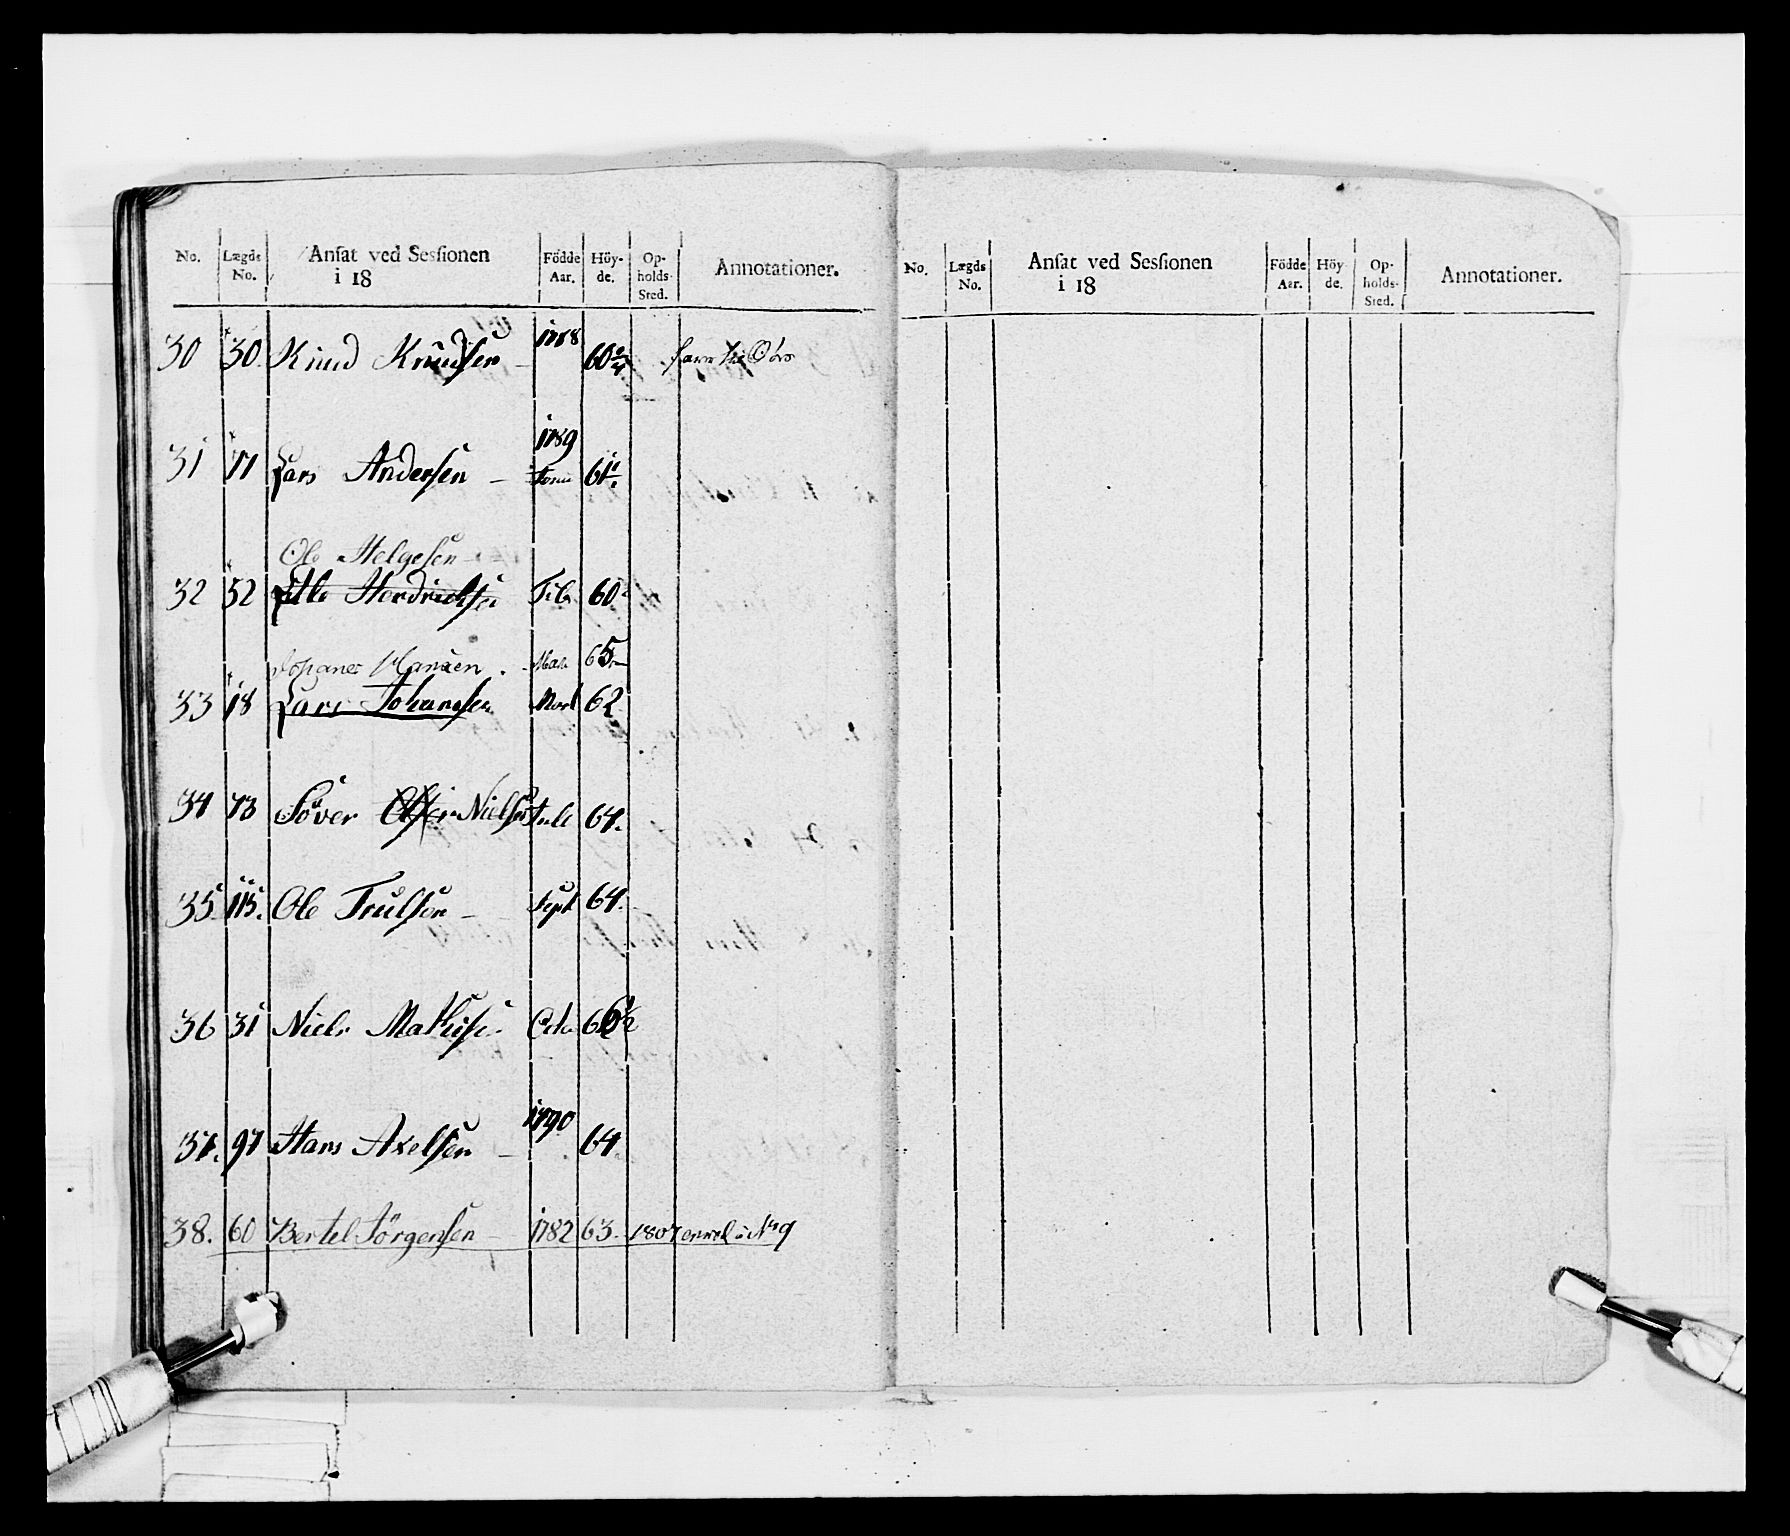 No. Lægds No. Ansat ved Sessionen i 18 Födde Aar. Höy-de. Op-holds-Sted. Annotationer.
30 30. Knud Knudsen - 1788 60 3/4
31 11 Lars Andersen - 1789 61
Ole Helgesen
32 52 Hendrichsen Feb 60
Johanes Hansen. Mar. 65
33 18 Lars Johansen Mart 62
34 73 Söver Nielsen 64.
35. 115. Ole Trulsen - Sept 64.
36 31 Niels Mathisen Octo
37. 97 Hans Axelsen - 1790 64.
38. 60 Bertel Jörgensen - 1782 63. 1807 No 9
No. Lægds No. Ansat ved Sessionen i 18 Födde Aar. Höy-de. Op-holds-Sted. Annotationer.